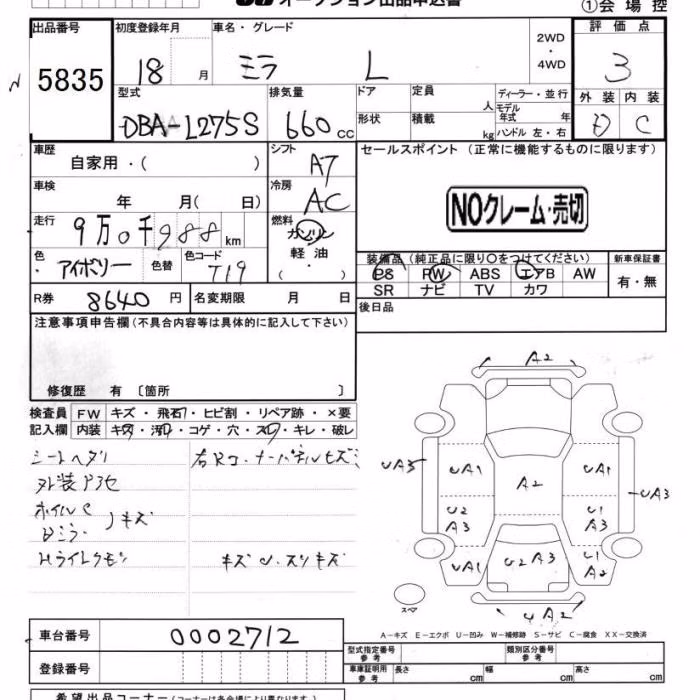 オークション出品申込書
①会場控
出品番号 初度登録年月 車名・グレード 2WD・4WD 評価点
5835 18 月 ミラ L 3
型式 排気量 ドア 定員 人 ディーラー・並行 外装 内装
DBA-L275S 660 cc 形状 積載 kg モデル年式 年 ハンドル 左・右 D C
車歴 自家用・( ) シフト A7 セールスポイント (正常に機能するものに限ります)
車検 年 月( 日) 冷房 AC
NOクレーム・売切
走行 9万0千988km 燃料 ガソリン・軽油・( )
色 アイボリー 色替 色コード T19
装備品 (純正品に限り〇をつけてください) 新車保証書
PS PW ABS エアB AW 有・無
SR ナビ TV カワ
R券 8640円 名変期限 月 日 後日品
注意事項申告欄(不具合内容等は具体的に記入して下さい)
修復歴 有 〔箇所 〕
検査員 FW キズ・飛石・ヒビ割・リペア跡・×要
記入欄 内装 キズ・汚れ・コゲ・穴・スレ・キレ・破レ
シートヘタリ
外装
ホイルC
Dミラー
キズ
Hライトクモリ
キズ U・スリキズ
A2
UA3 UA1 A2 UA1 UA3
U2 A3 U1 A3
UA1 U2 A3 U1 A2
スペア
UA2
A-キズ E-エクボ U-凹み W-補修跡 S-サビ C-腐食 XX-交換済
車台番号 0002712
登録番号
型式指定番号 参考 類別区分番号 参考
車庫証明用 参考 長さ cm 幅 cm 高さ cm
希望出品コーナー(コーナーは各会場により異なります)